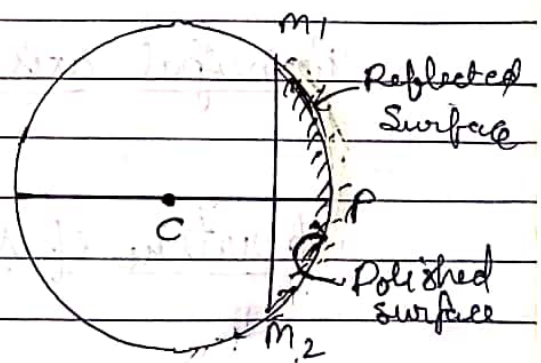 M1
Reflected
Surface
P
C
Polished
surface
M2